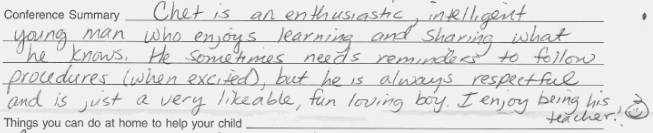 Conference Summary Chet is an enthusiastic, intelligent
young man who enjoys learning and sharing what
he knows. He sometimes needs reminders to follow
procedures (when excited), but he is always respectful
and is just a very likeable, fun loving boy. I enjoy being his
teacher!
Things you can do at home to help your child